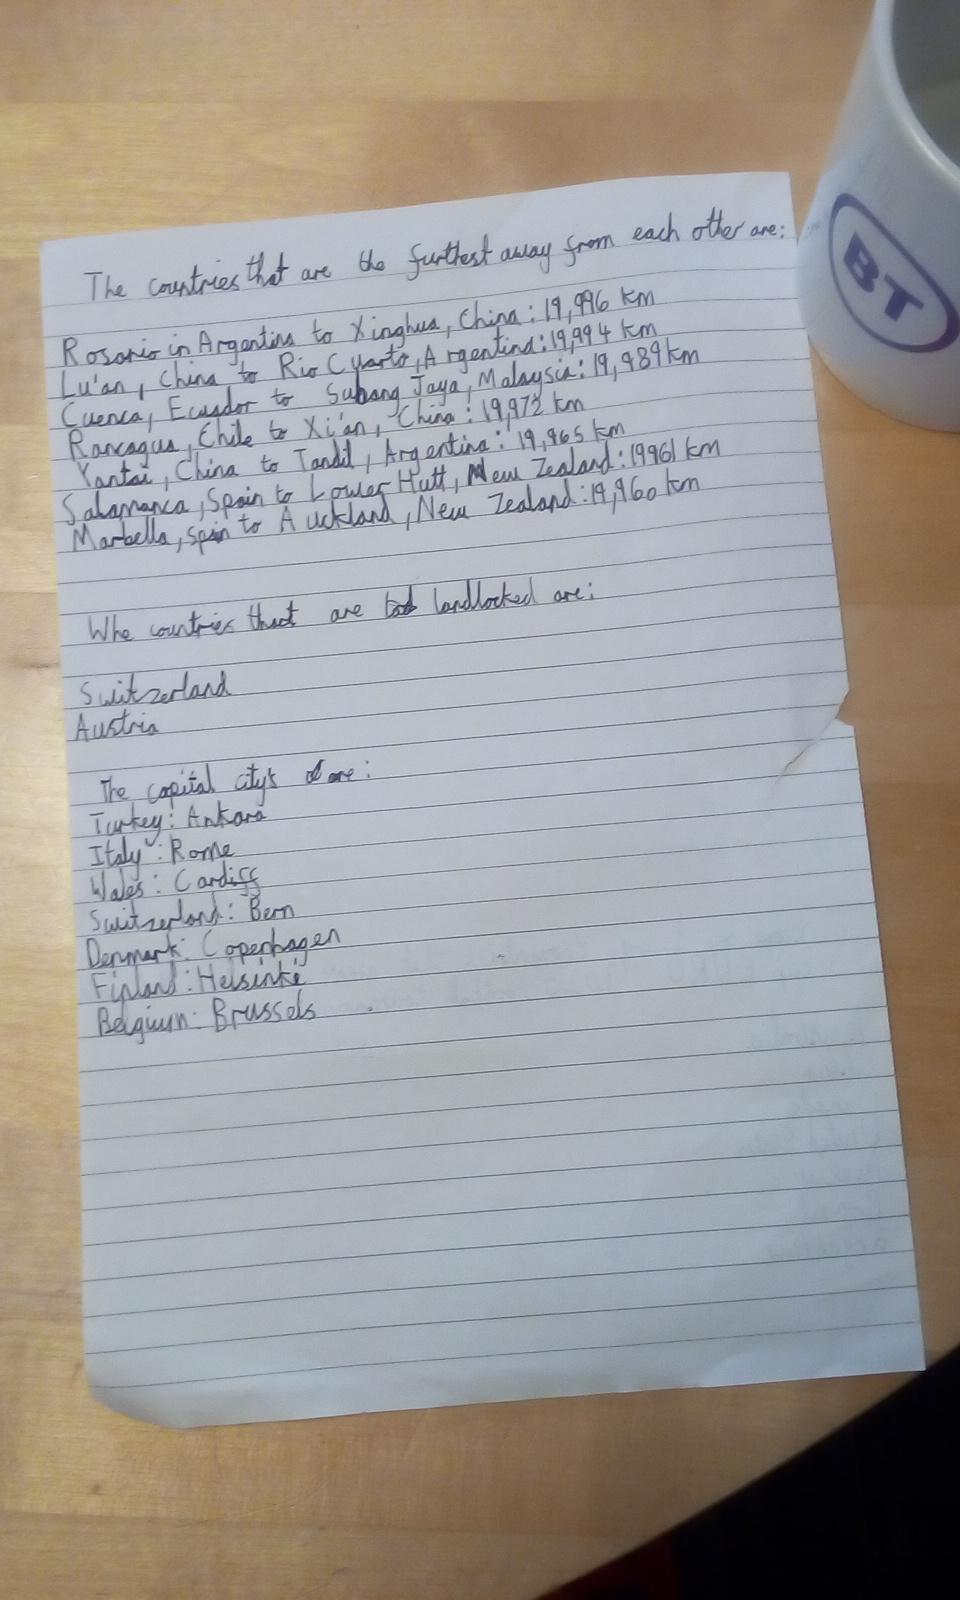 The countries that are the furthest away from each other are:
Rosario in Argentina to Xinghua, China: 19,996 km
Lu'an, China to Rio Cuarto, Argentina: 19,994 km
Cuenca, Ecuador to Subang Jaya, Malaysia: 19,989 km
Rancagua, Chile to Xi'an, China: 19,972 km
Yantai, China to Tandil, Argentina: 19,965 km
Salamanca, Spain to Lower Hutt, New Zealand: 19961 km
Marbella, Spain to Auckland, New Zealand: 19,960 km
Whe countries that are landlocked are:
Switzerland
Austria
The capital city's are:
Turkey: Ankara
Italy: Rome
Wales: Cardiff
Switzerland: Bern
Denmark: Copenhagen
Finland: Helsinki
Belgium: Brussels
BT